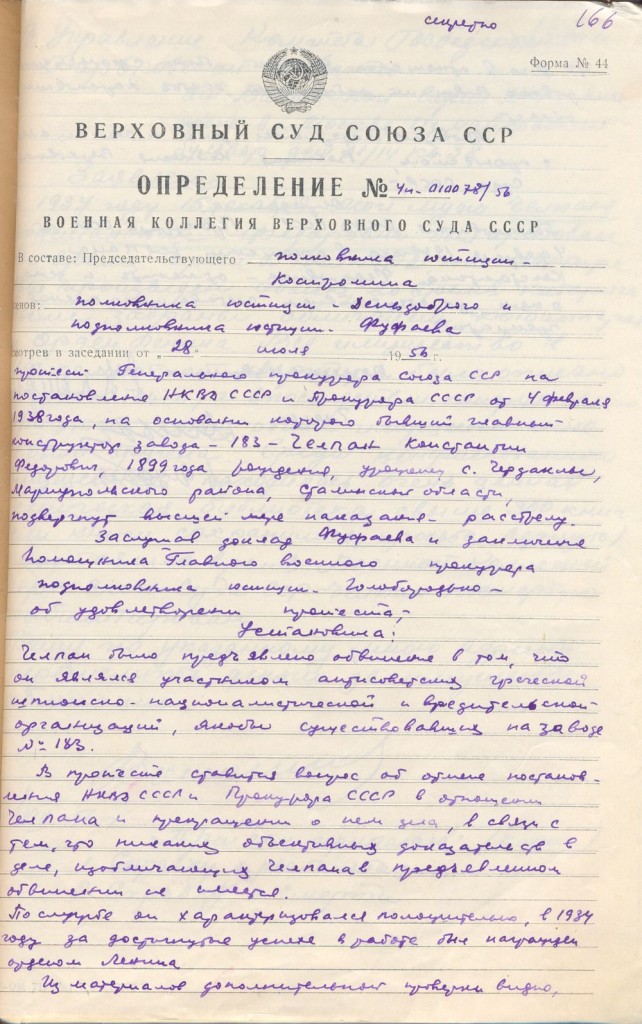 секретно
166
Форма № 44
ВЕРХОВНЫЙ СУД СОЮЗА ССР
ОПРЕДЕЛЕНИЕ № 4н-010078/56
ВОЕННАЯ КОЛЛЕГИЯ ВЕРХОВНОГО СУДА СССР
В составе: Председательствующего полковника юстиции -
Костромина
енов: полковника юстиции - Дениздоброго и
подполковника юстиции - Фуфаева
мотрев в заседании от „28" июля 1956 г.
протест Генерального прокурора Союза ССР на
постановление НКВД СССР и Прокурора СССР от 4 февраля
1938 года, на основании которого бывший главный
конструктор завода - 183 - Челпан Константин
Федорович, 1899 года рождения, уроженец с. Чердаклы,
Мариупольского района, Сталинской области,
подвергнут высшей мере наказания - расстрелу.
Заслушав доклад Фуфаева и заключение
помощника Главного военного прокурора
подполковника юстиции - Голобородько -
об удовлетворении протеста, -
Установила:
Челпан было предъявлено обвинение в том, что
он являлся участником антисоветских греческой
шпионско-националистической и вредительской
организаций, якобы существовавших на заводе
№ 183.
В протесте ставится вопрос об отмене постанов-
ления НКВД СССР и Прокурора СССР в отношении
Челпана и прекращении о нем дела, в связи с
тем, что никаких объективных доказательств в
деле, изобличающих Челпана в предъявленном
обвинении не имеется.
По службе он характеризовался положительно, в 1934
году за достигнутые успехи в работе был награжден
орденом Ленина
Из материалов дополнительной проверки видно,